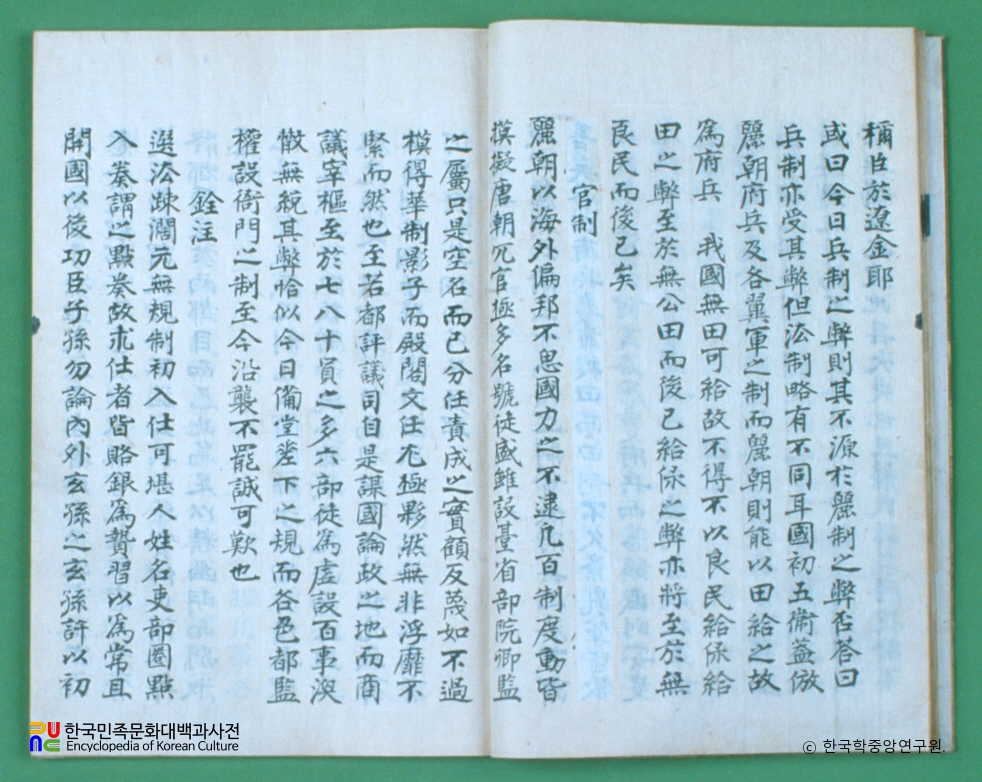 稱臣於遼金耶
或曰今日兵制之弊則其不源於麗制之弊否答曰
兵制亦受其弊但法制略有不同耳國初五衛蓋倣
麗朝府兵及各翼軍之制而麗朝則能以田給之故
爲府兵 我國無田可給故不得不以良民給保給
田之弊至於無公田而後已給保之弊亦將至於無
良民而後已矣
官制
麗朝以海外偏邦不思國力之不逮凡百制度動皆
摸擬唐朝冗官極多名號徒盛雖設臺省部院卿監
之屬只是空名而已分任責成之實顧反蔑如不過
模得華制影子而殿閣文任尤極夥然無非浮靡不
緊而然也至若都評議司自是謀國論政之地而商
議宰樞至於七八十員之多六部徒爲虛設百事渙
散無統其弊恰似今日備堂坐下之規而各邑都監
權設衙門之制至今沿襲不罷誠可歎也
銓注
選法踈濶元無規制初入仕可堪人姓名吏部圈點
入奏謂之點奏故求仕者皆賂銀爲贄習以爲常且
開國以後功臣子孫勿論內外玄孫之玄孫許以初
한국민족문화대백과사전
Encyclopedia of Korean Culture
© 한국학중앙연구원.